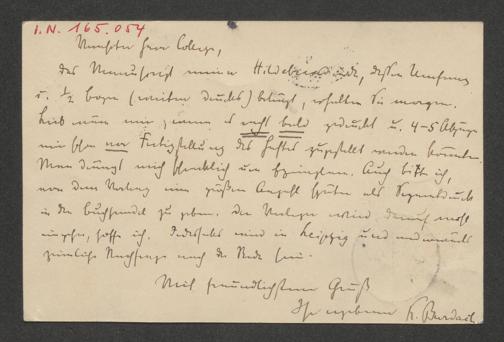 I.N. 165.054
Verehrter Herr College,
das Manuscript meiner Hildebrand, dessen Umfang
c. 1/2 Bogen (weiten Drucks) beträgt, erhalten Sie morgen.
Lieb wäre mir, wenn es recht bald gedruckt u. 4-5 Abzüge
mir schon vor Fertigstellung des Heftes zugestellt werden könnten.
Man drängt mich schrecklich um Exemplare. Auch bitte ich,
von dem Vortrag eine größere Anzahl später als Separatdruck
in den Buchhandel zu geben. Der Verleger wird darauf wohl
eingehn, hoffe ich. Jedenfalls wird in Leipzig und anderwärts
ziemliche Nachfrage nach der Rede sein.
Mit freundlichstem Gruß
Ihr ergebener K. Burdach